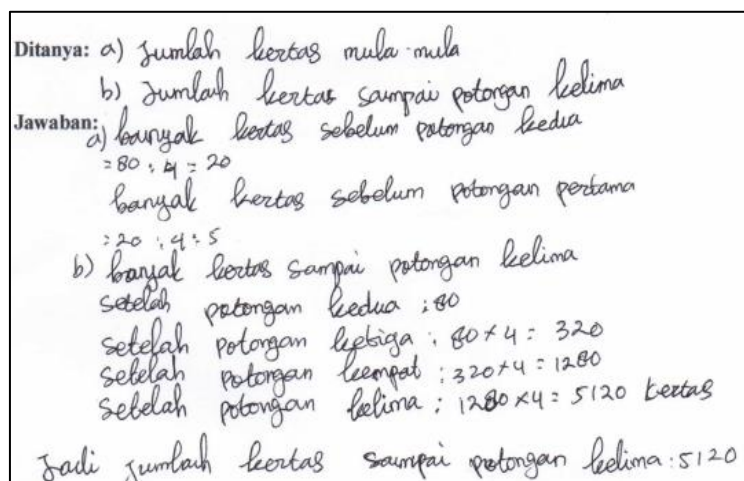 Ditanya: a) Jumlah kertas mula-mula
b) Jumlah kertas sampai potongan kelima
Jawaban:
a) banyak kertas sebelum potongan kedua
= 80 : 4 = 20
banyak kertas sebelum potongan pertama
: 20 : 4 = 5
b) banyak kertas sampai potongan kelima
setelah potongan kedua : 80
setelah potongan ketiga : 80 x 4 = 320
setelah potongan keempat : 320 x 4 = 1280
setelah potongan kelima : 1280 x 4 = 5120 kertas
Jadi jumlah kertas sampai potongan kelima : 5120